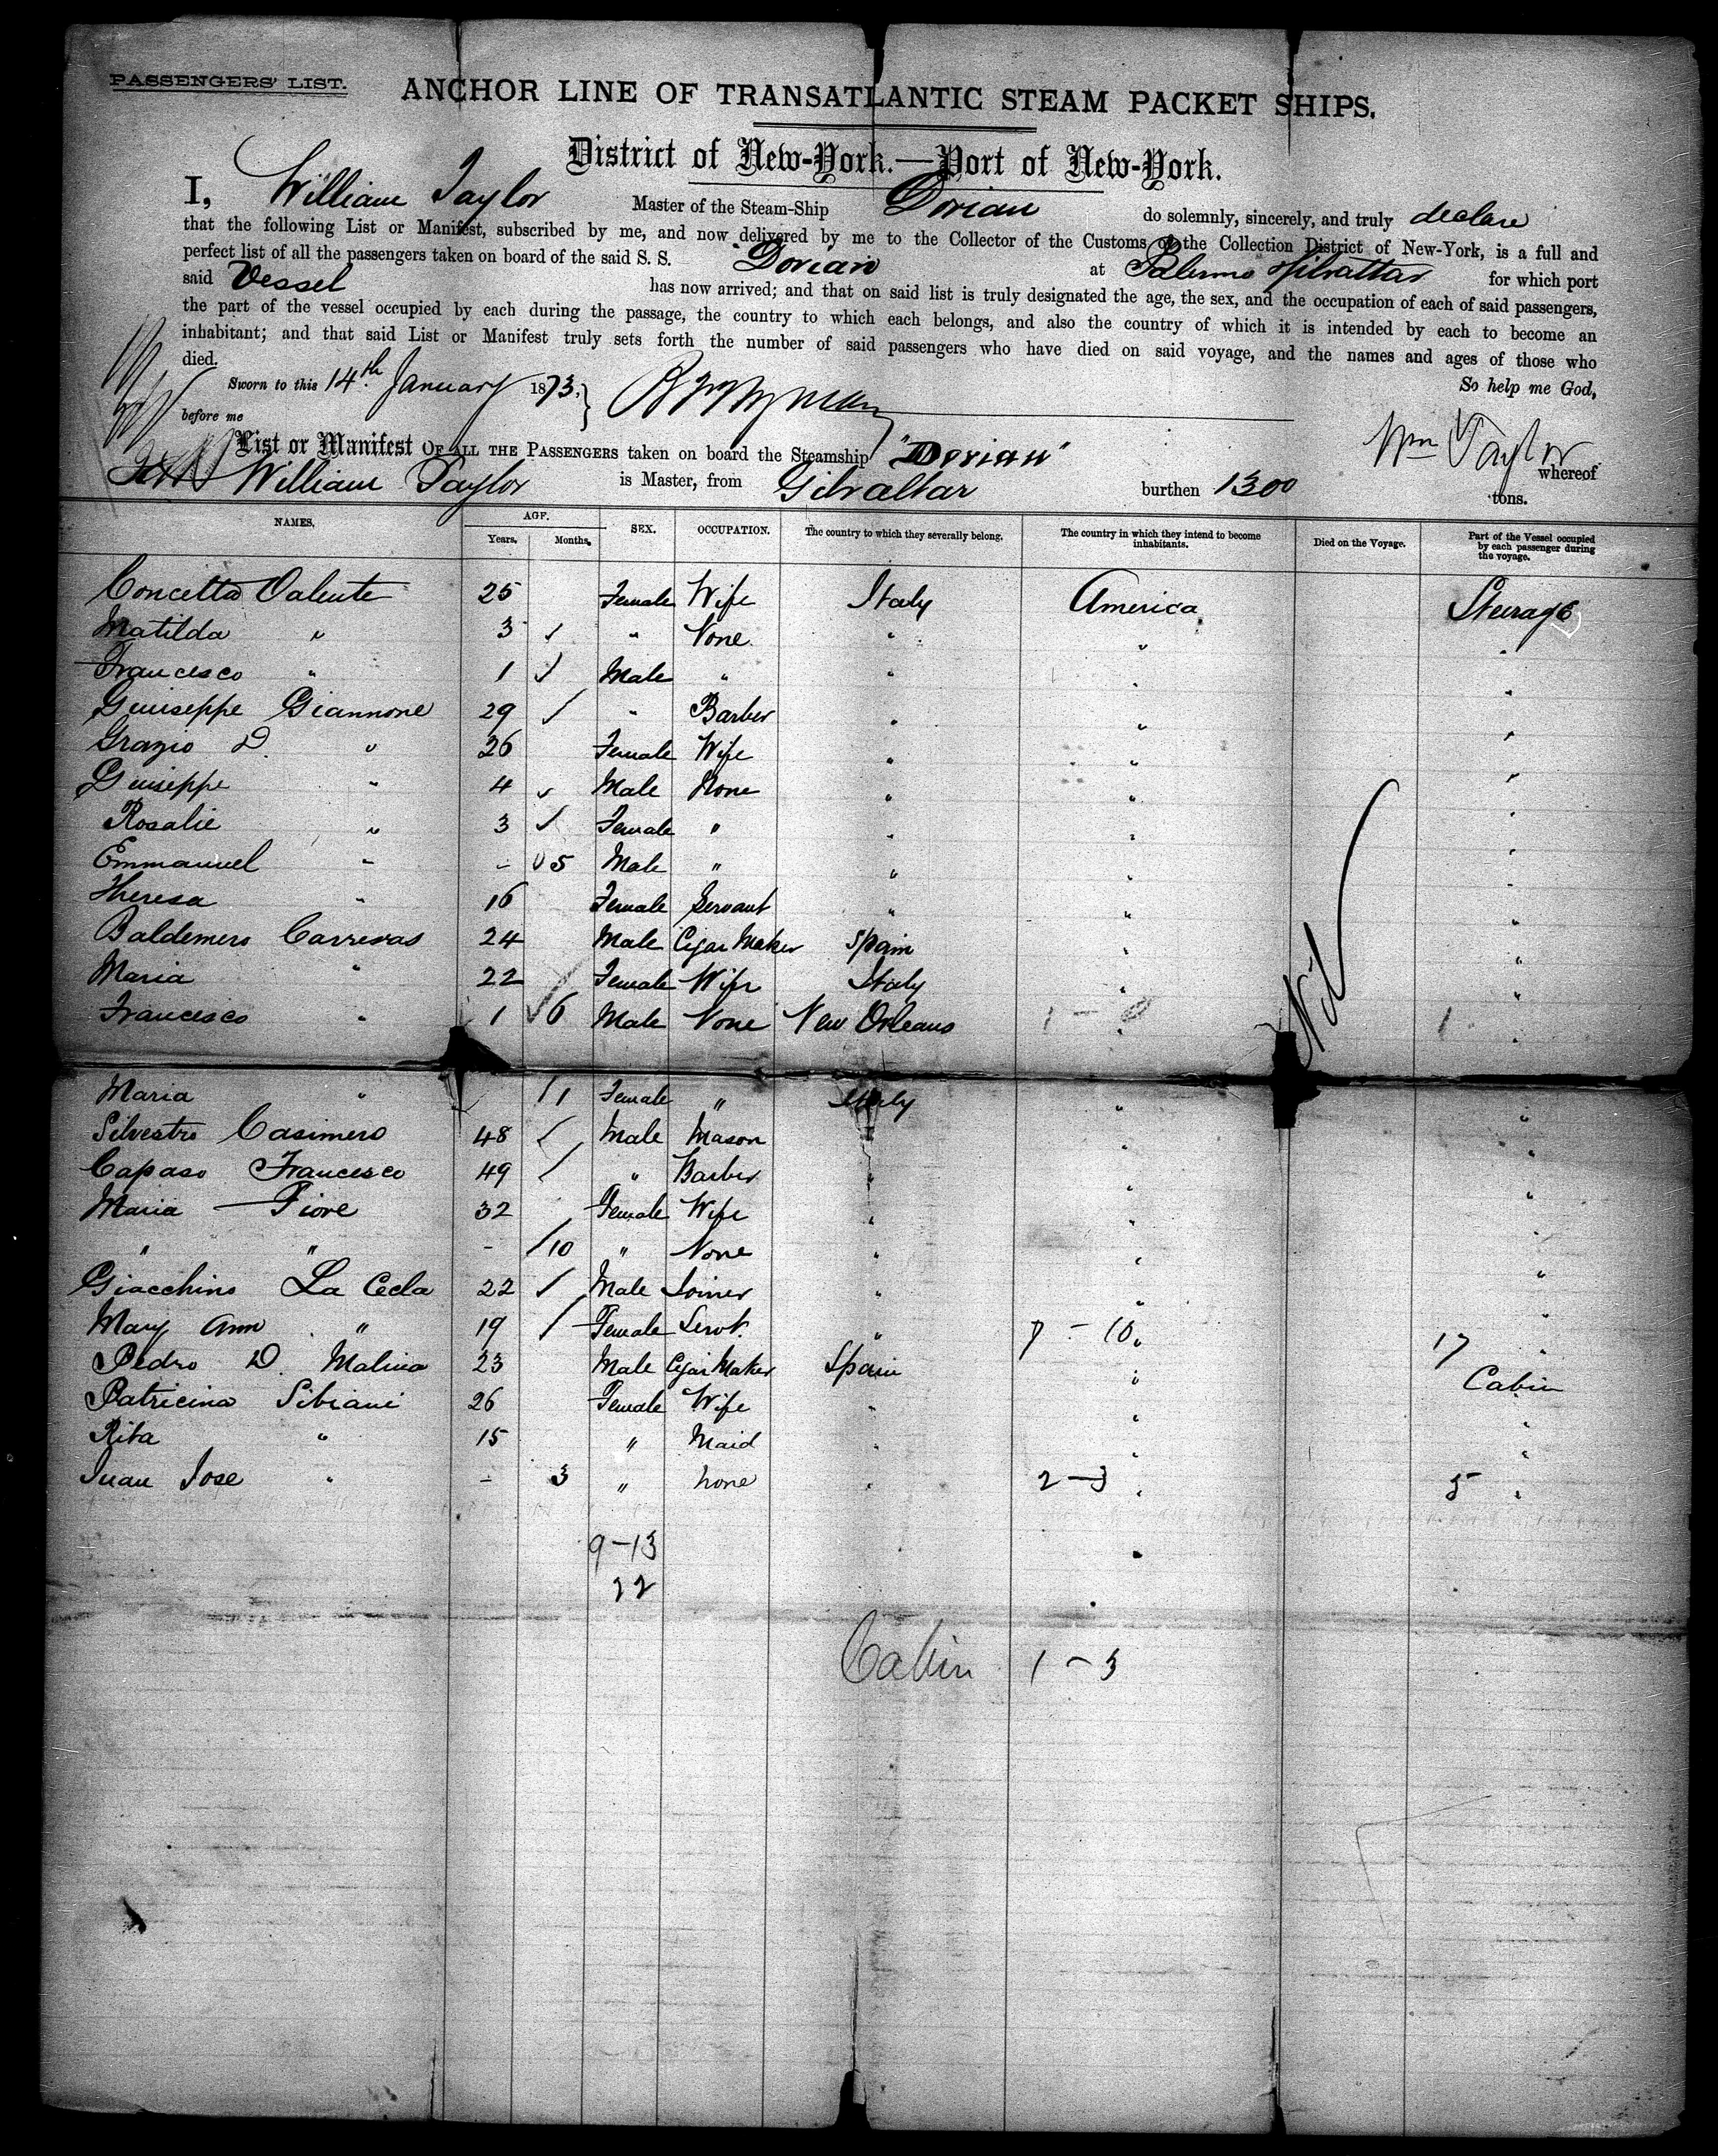 PASSENGERS' LIST.
ANCHOR LINE OF TRANSATLANTIC STEAM PACKET SHIPS.
District of New-York.—Port of New-York.
I, William Taylor Master of the Steam-Ship Dorian do solemnly, sincerely, and truly declare
that the following List or Manifest, subscribed by me, and now delivered by me to the Collector of the Customs of the Collection District of New-York, is a full and
perfect list of all the passengers taken on board of the said S. S. "Dorian at Palermo Gibraltar for which port
said Vessel has now arrived; and that on said list is truly designated the age, the sex, and the occupation of each of said passengers,
the part of the vessel occupied by each during the passage, the country to which each belongs, and also the country of which it is intended by each to become an
inhabitant; and that said List or Manifest truly sets forth the number of said passengers who have died on said voyage, and the names and ages of those who
died.
So help me God,
Sworn to this 14th January 1873.
before me
Wm Taylor
List or Manifest OF ALL THE PASSENGERS taken on board the Steamship "Dorian" whereof
William Taylor is Master, from Gibraltar burthen 1300 tons.
NAMES. AGE. Years. Months. SEX. OCCUPATION. The country to which they severally belong. The country in which they intend to become inhabitants. Died on the Voyage. Part of the Vessel occupied by each passenger during the voyage.
Concetta Valente 25 Female Wife Italy America Steerage
Matilda " 3 " None " " "
Francesco " 1 Male " " " "
Guiseppe Giannone 29 " Barber " " "
Grazio D. " 26 Female Wife " " "
Guiseppe " 4 Male None " " "
Rosalie " 3 Female " " " "
Emmanuel " - 5 Male " " " "
Theresa " 16 Female Servant " " "
Baldemero Carreras 24 Male Cigar Maker Spain " "
Maria " 22 Female Wife Italy " "
Francesco " 1 6 Male None New Orleans 1 - 0 " 1 "
Nil
Maria " 11 Female " Italy " "
Silvestro Casimero 48 Male Mason " " "
Capaso Francesco 49 " Barber " " "
Maria Fiore 32 Female Wife " " "
" " - 10 " None " " "
Giacchino La Cecla 22 Male Joiner " " "
Mary Ann " 19 Female Servt. " 7 - 10 " 17 "
Pedro D. Molina 23 Male Cigar Maker Spain " Cabin
Patricina Sibiani 26 Female Wife " " "
Rita " 15 " Maid " " "
Juan Jose " - 3 " none " 2 - 3 " 5 "
9 - 13
22
Cabin 1 - 3